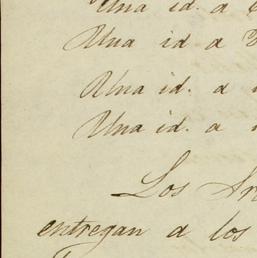 Una id. a
Una id a
Una id. a
Una id. a
Los
entregan a los